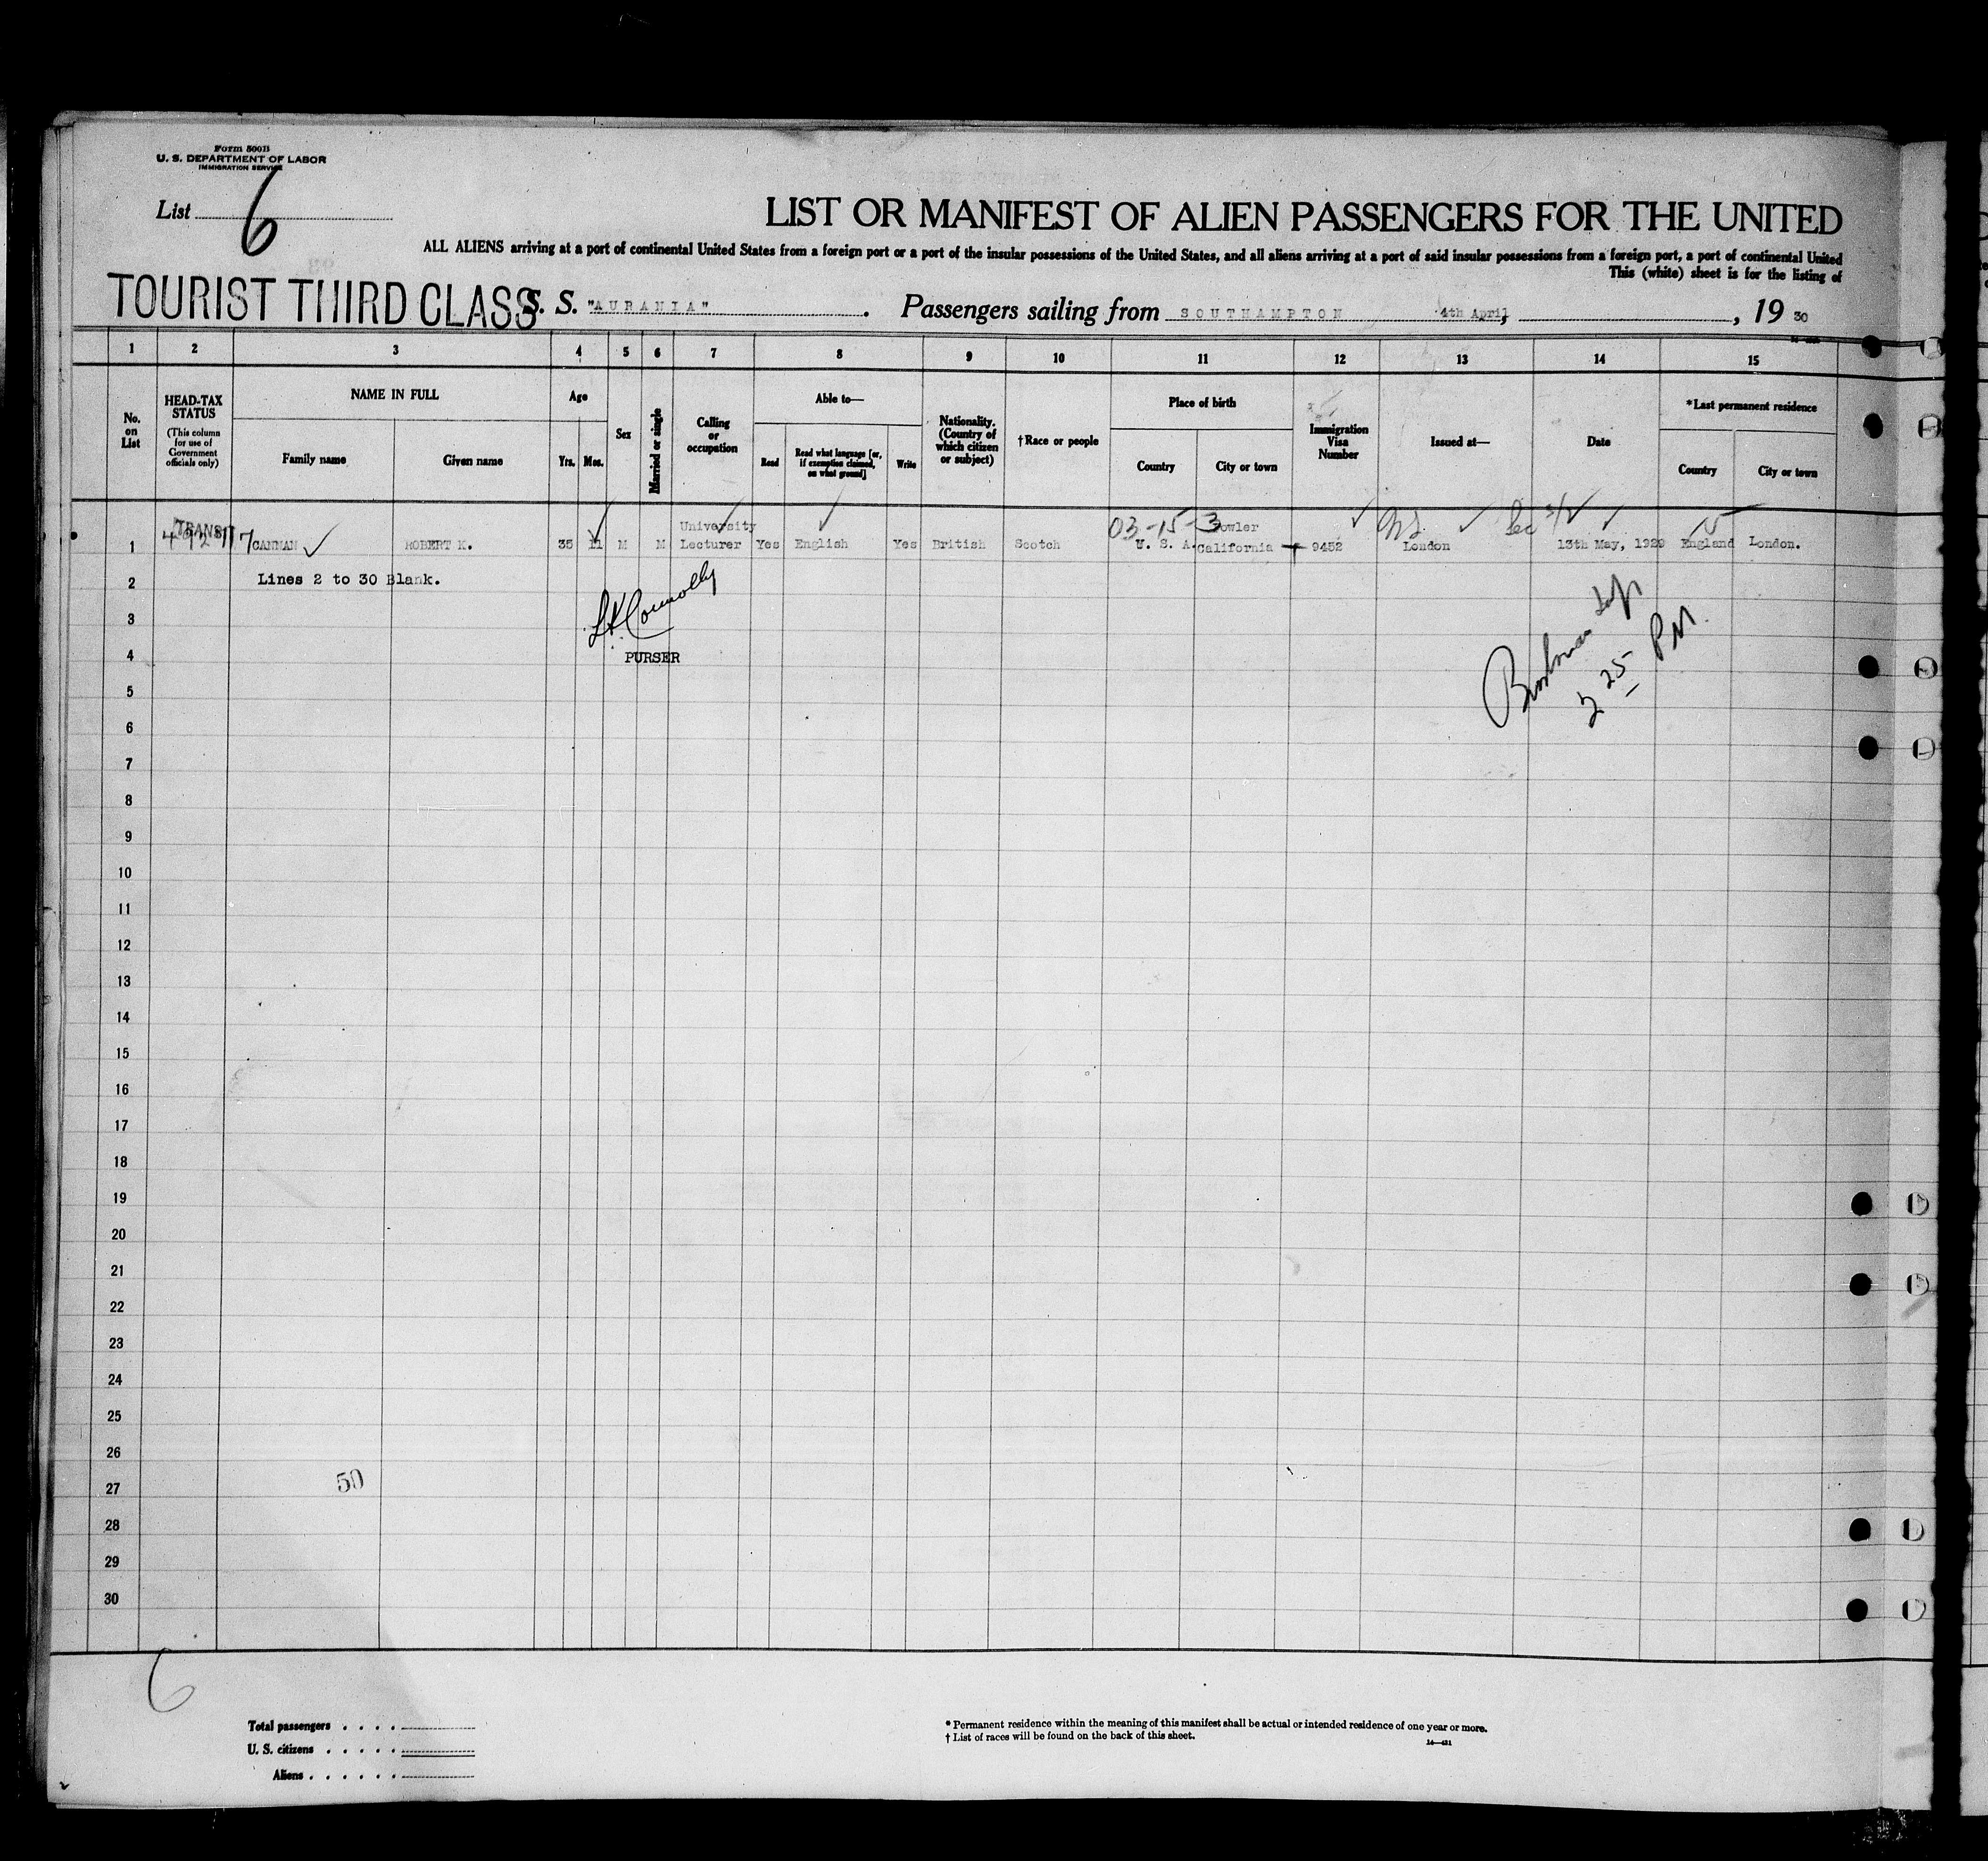 Form 500B
U. S. DEPARTMENT OF LABOR
IMMIGRATION SERVICE
List 6
LIST OR MANIFEST OF ALIEN PASSENGERS FOR THE UNITED
ALL ALIENS arriving at a port of continental United States from a foreign port or a port of the insular possessions of the United States, and all aliens arriving at a port of said insular possessions from a foreign port, a port of continental United
This (white) sheet is for the listing of
TOURIST THIRD CLASS S. S. "AURANIA". Passengers sailing from SOUTHAMPTON 4th April, , 19 30
1 2 3 4 5 6 7 8 9 10 11 12 13 14 15
No. on List
HEAD-TAX STATUS
(This column for use of Government officials only)
NAME IN FULL
Family name
Given name
Age
Yrs. Mos.
Sex
Married or single
Calling or occupation
Able to—
Read
Read what language [or, if exemption claimed, on what ground]
Write
Nationality. (Country of which citizen or subject)
†Race or people
Place of birth
Country
City or town
Immigration Visa Number
Issued at—
Date
*Last permanent residence
Country
City or town
TRANSIT 03-15-3 15
1 CANNAN ROBERT K. 35 11 M M University Lecturer Yes English Yes British Scotch U. S. A. Fowler California 9452 London 13th May, 1929 England London.
2 Lines 2 to 30 Blank.
3 L.K. Connolly
4 PURSER
2 25 PM
5
6
7
8
9
10
11
12
13
14
15
16
17
18
19
20
21
22
23
24
25
26
27 50
28
29
30
6
Total passengers . . . .
U. S. citizens . . . . .
Aliens . . . . . .
* Permanent residence within the meaning of this manifest shall be actual or intended residence of one year or more.
† List of races will be found on the back of this sheet.